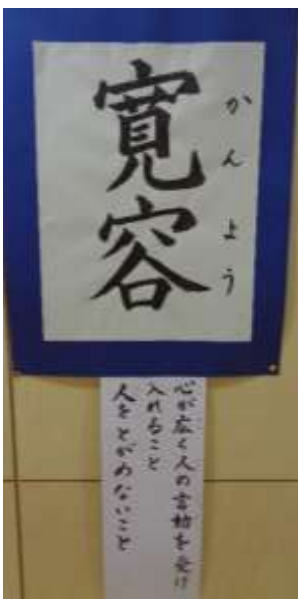 かんよう
寛容
心が広く人の言動を受け
入れること
人をとがめないこと